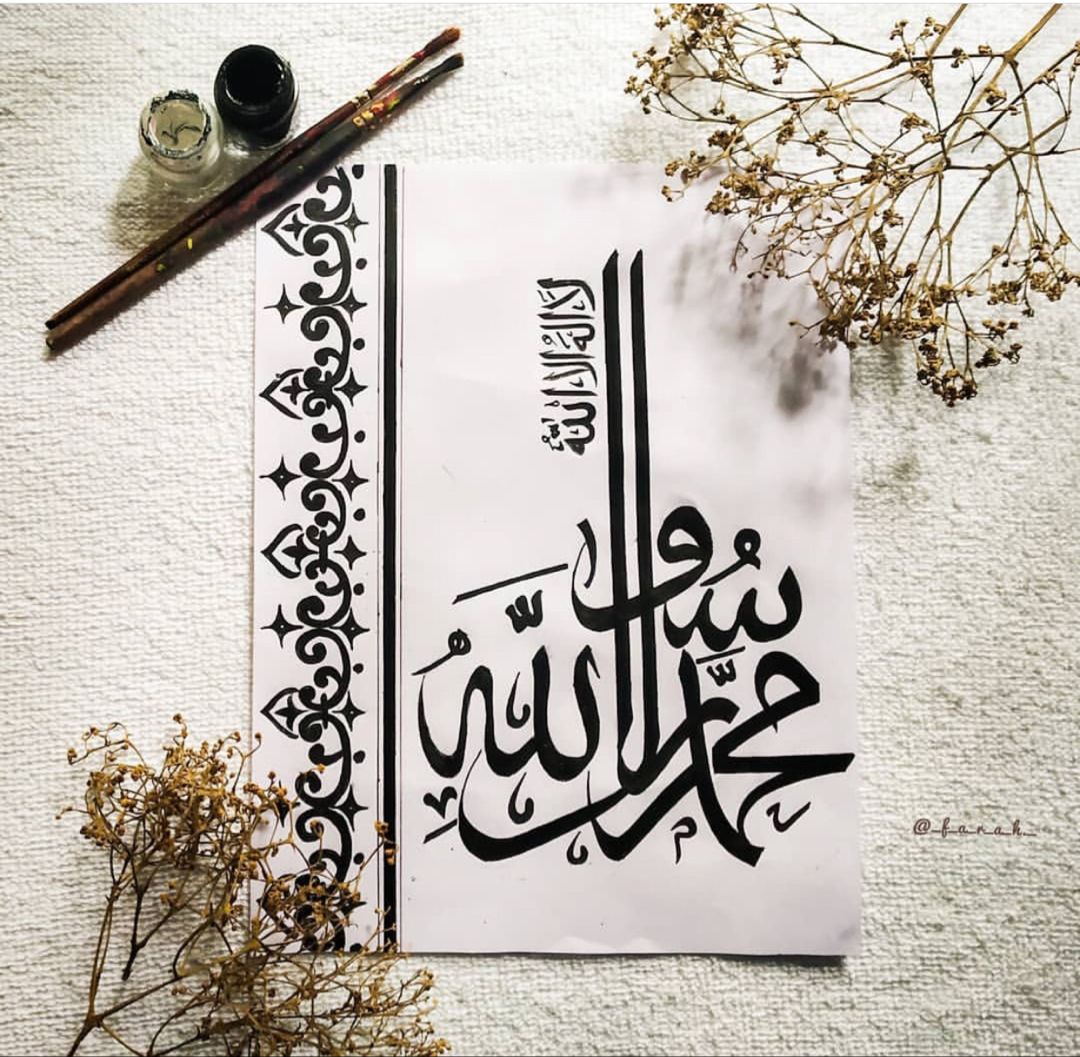 لا اله الا الله
محمد رسول الله
@_f_a_r_a_h_